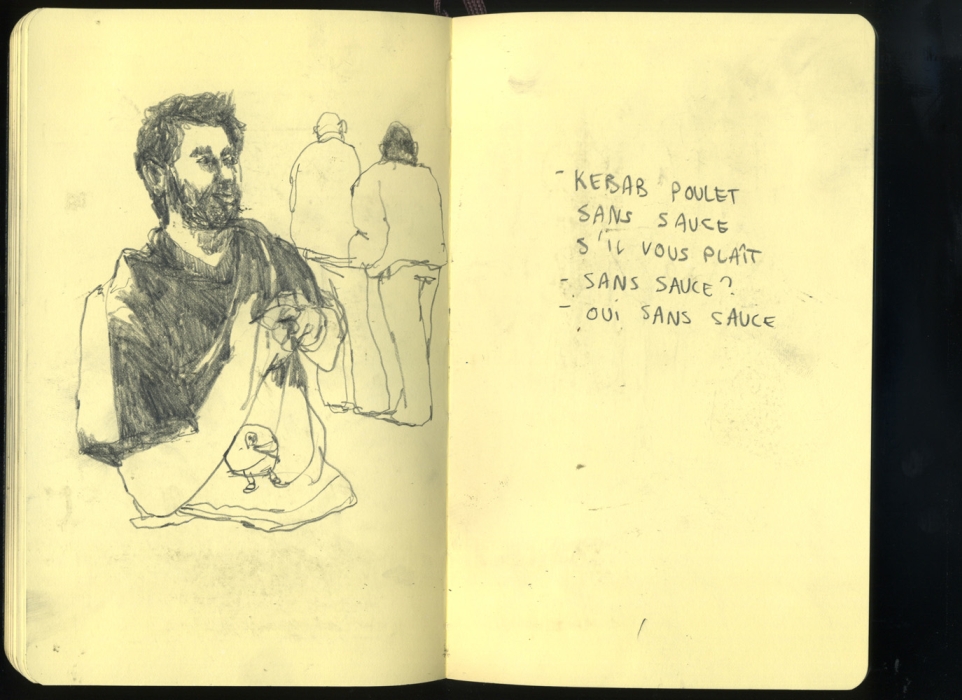 - KEBAB POULET
SANS SAUCE
S'IL VOUS PLAÎT
- SANS SAUCE?
- OUI SANS SAUCE